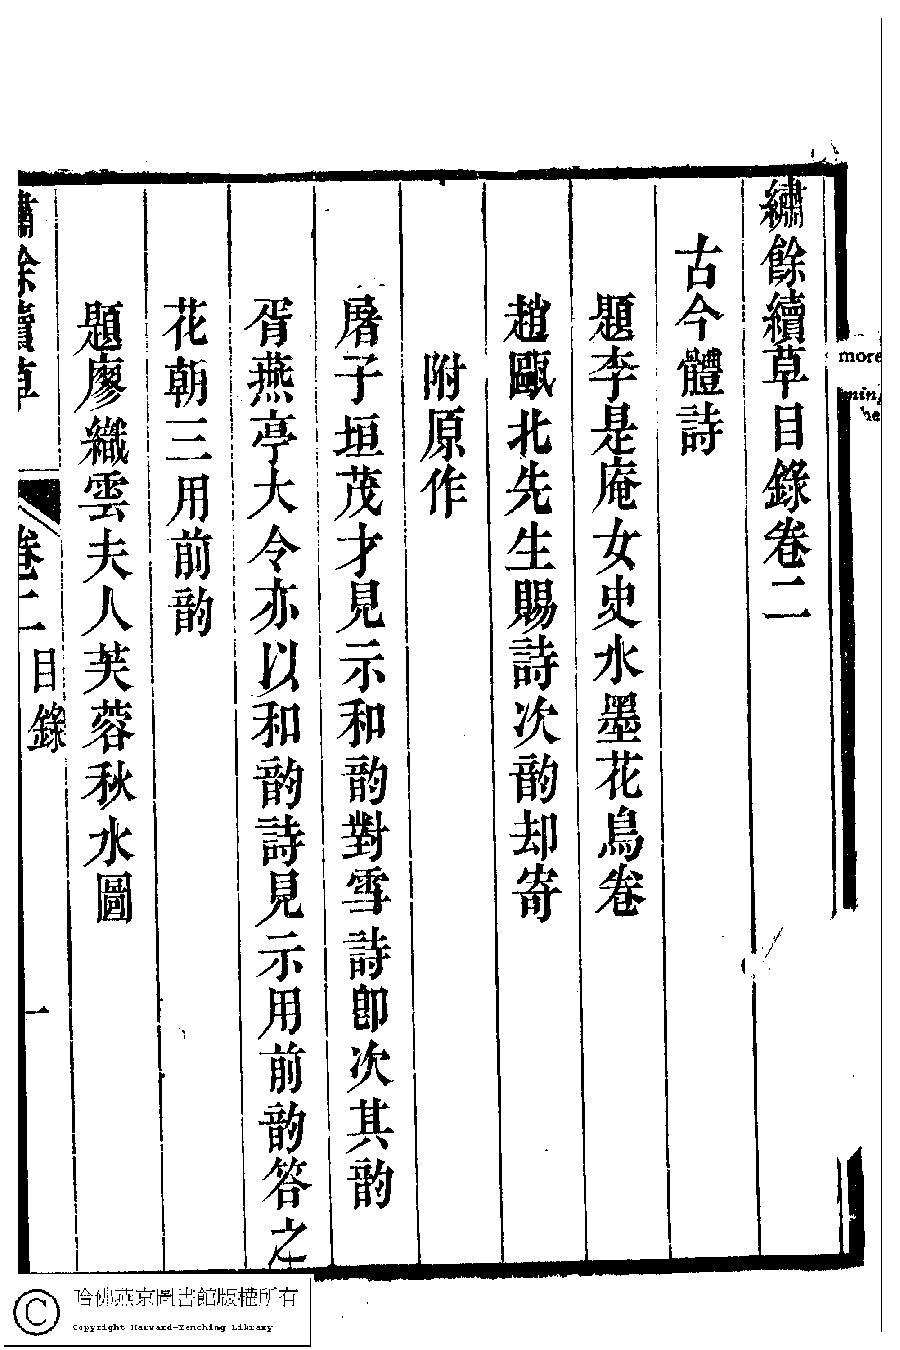 繡餘續草目錄卷二
古今體詩
題李是庵女史水墨花鳥卷
趙甌北先生賜詩次韵却寄
附原作
屠子垣茂才見示和韵對雪詩卽次其韵
胥燕亭大令亦以和韵詩見示用前韵答之
花朝三用前韵
題廖織雲夫人芙蓉秋水圖
繡餘續草 卷二 目錄 一
more
哈佛燕京圖書館版權所有
Copyright Harvard-Yenching Library